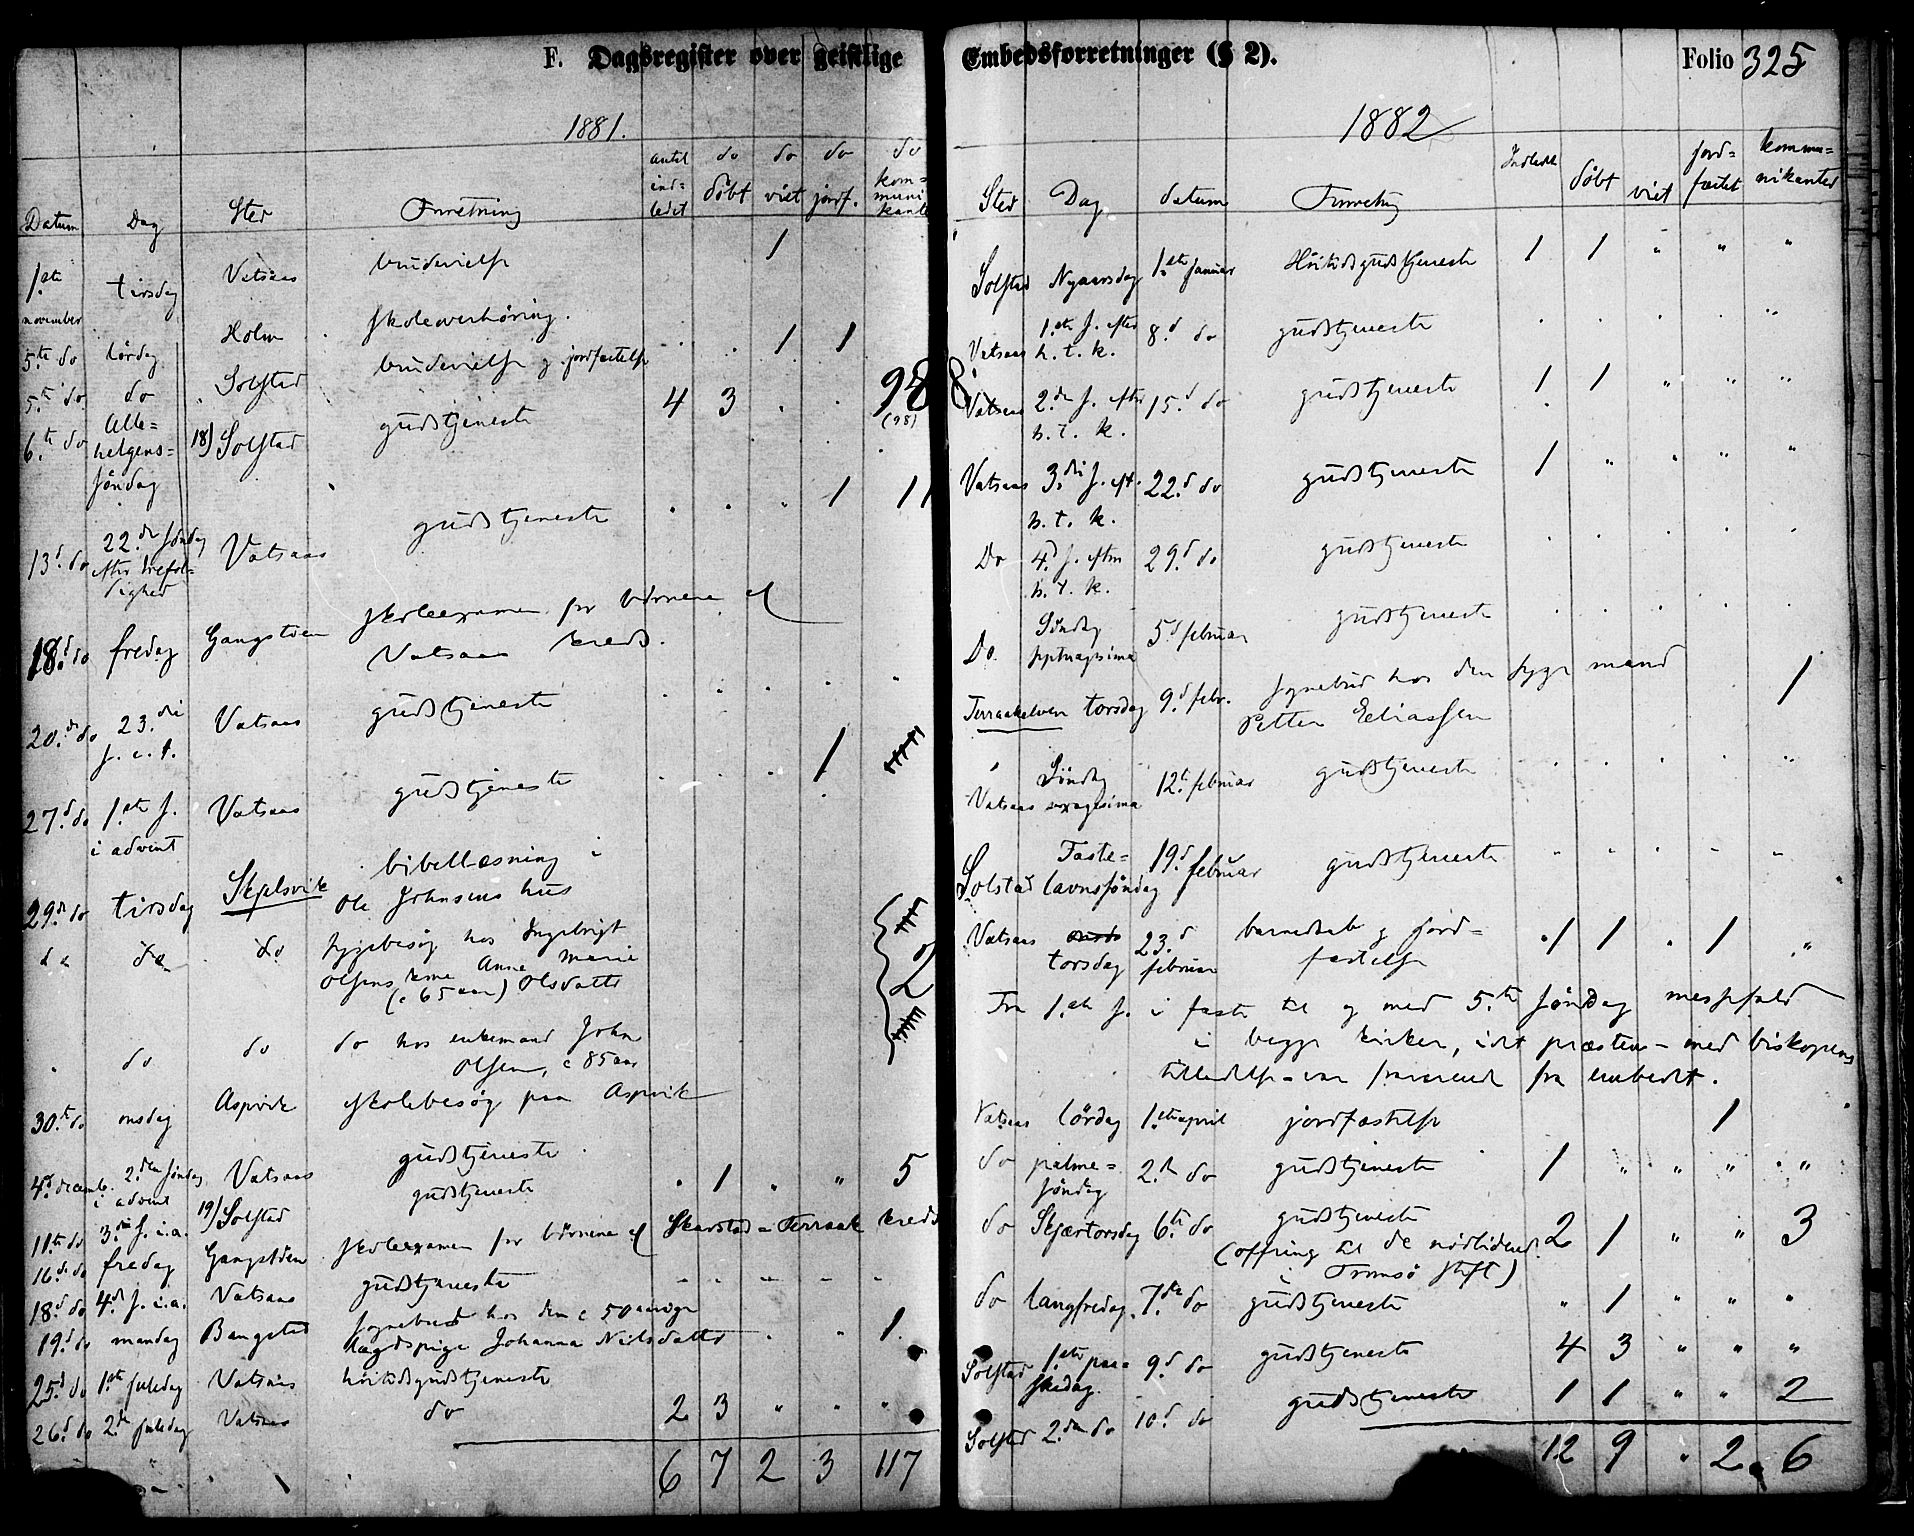 F. Dagsregister over geistlige Embedsforretninger (§ 2). Folio 325
1881.
Datum Dag Sted Forretning antal indledet do døbt do viet do jordf. do kommunikanter
1.ste november tirsdag Vatsaas brudevielse 1
5.te do lørdag Holm skoleoverhøring.
5.te do do Solstad brudevielse og jordfæstelse . . 1 1
6.te do Allehelgens-søndag 18) Solstad gudstjeneste 4 3 . . 98
(98)
13.d do 22.de søndag efter trefoldighed Vatsaas gudstjeneste . . . 1 11
18.d do fredag Gangstøen skoleexamen for børnene af
Vatsaas kreds.
20.de do 23.die s. e. t. Vatsaas gudstjeneste
27.d do 1.ste s. i advent Vatsaas gudstjeneste . . . 1
29.de do tirsdag Skjelsvik bibellæsning i
Ole Johnsens hus
do do do sygebesøg hos Ingebrigt
Olsens kone Anne Marie
(c 65 aar) Olsdatter 2
do do do hos enkemand John
Olsen, c 85 aar
30.te do onsdag Aspvik skolebesøg paa Aspvik
4.d decemb. 2.den søndag i advent Vatsaas gudstjeneste
11.te do 3.die s. i. a. 19) Solstad gudstjeneste . 1 „ „ 5
16.de do fredag Gangstøen skoleexamen for børnene af Skarstad - Terraak kreds
18.d do 4.de s. i. a. Vatsaas gudstjeneste
19.d do mandag Bangstad sognebud hos den c 50 aarige
lægdspige Johanna Nilsdatter 1.
25.d do 1.ste juledag Vatsaas høitidsgudstjeneste
26.d do 2.de juledag Vatsaas do 2 3 „ „ „
6 7 2 3 117
1882
Sted Dag datum Forretning Indledt døbt viet jordfæstet kommunikanter
Solstad Nyaarsdag 1.ste januar Høitidsgudstjeneste 1 1 „ „ „
Vatsaas 1.ste s. efter h. t. k. 8.d do gudstjeneste
Vatsaas 2.den s. efter h. t. k. 15.d do gudstjeneste 1 1 „ „ „
Vatsaas 3.die s. eft. h. t. k. 22.d do gudstjeneste 1 „ „ „ „
Do 4.d s. efter h. t. k. 29.d do gudstjeneste
Do. Søndag septuagesima 5.d februar gudstjeneste
Terraakelven torsdag 9.d febr. sognebud hos den syge mand
Petter Eliassen 1
Vatsaas Søndag sexagesima 12.te februar gudstjeneste
Solstad Faste-lavnssøndag 19.d februar gudstjeneste
Vatsaas torsdag 23.d februar barnedaab og jord-
fæstelse 1 1 . 1 „
Fra 1.ste s. i faste til og med 5.te søndag messefald
i begge kirker, idet præsten - med biskopens
tilladelse - var fraværende fra embedet.
Vatsaas lørdag 1.ste april jordfæstelse 1
do palme-søndag 2.de do gudstjeneste 1 „ „ „ „
do Skjærtorsdag 6.te do gudstjeneste
(offring til de nødlidende
i Tromsø stift) 2 1 „ „ 3
do langfredag. 7.de do gudstjeneste „ 1 „ „ „
Solstad 1.ste paa-skedag. 9.d do gudstjeneste 4 3 „ „ „
Solstad 2.den do 10.d do gudstjeneste 1 1 „ „ 2
12 9 . 2 6